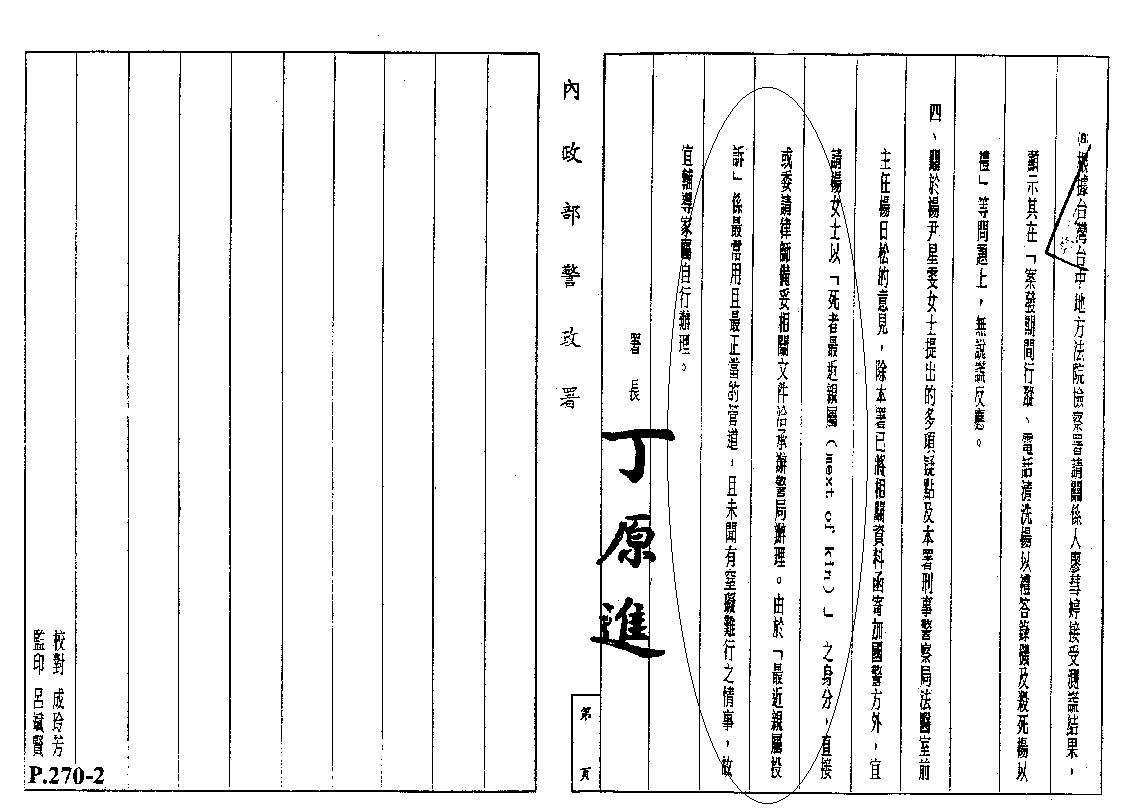 (6)根據台灣台中地方法院檢察署請關係人廖彗婷接受測謊結果，
顯示其在「案發期間行蹤、電話清洗楊以禮答錄機及殺死楊以
禮」等問題上，無說謊反應。
四、關於楊尹星雯女士提出的多項疑點及本署刑事警察局法醫室前
主任楊日松的意見，除本署已將相關資料函寄加國警方外，宜
請楊女士以「死者最近親屬（next of kin）」之身分，直接
或委請律師備妥相關文件洽承辦警局辦理。由於「最近親屬投
訴」係最常用且最正當的管道，且未聞有窒礙難行之情事，故
宜輔導家屬自行辦理。
署長 丁原進
內政部警政署
第 頁
校對 成玲芳
監印 呂斌賢
P.270-2